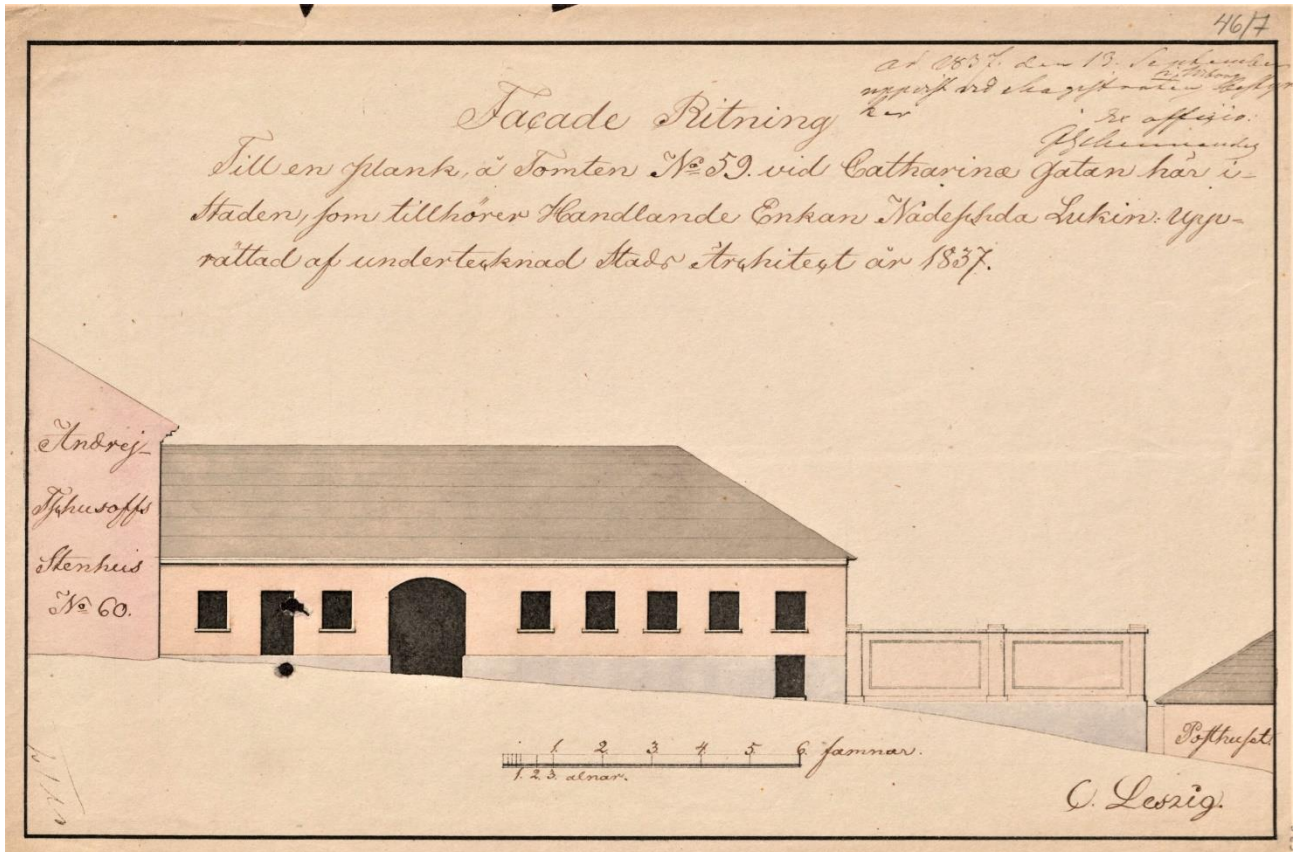 46/7
År 1837. den 13. September
uppvist vid Magistraten
här
ex officio:
Façade Ritning
Till en plank, å Tomten No 59. vid Catharinæ gatan här i-
staden, som tillhörer Handlande Enkan Nadeshda Lukin: upp-
rättad af undertecknad Stads Architect år 1837.
Andrej-
Tschusoffs
Stenhus
No 60.
1. 2. 3. 4. 5. 6. famnar.
1. 2. 3. alnar.
Posthuset
C. Leszig.